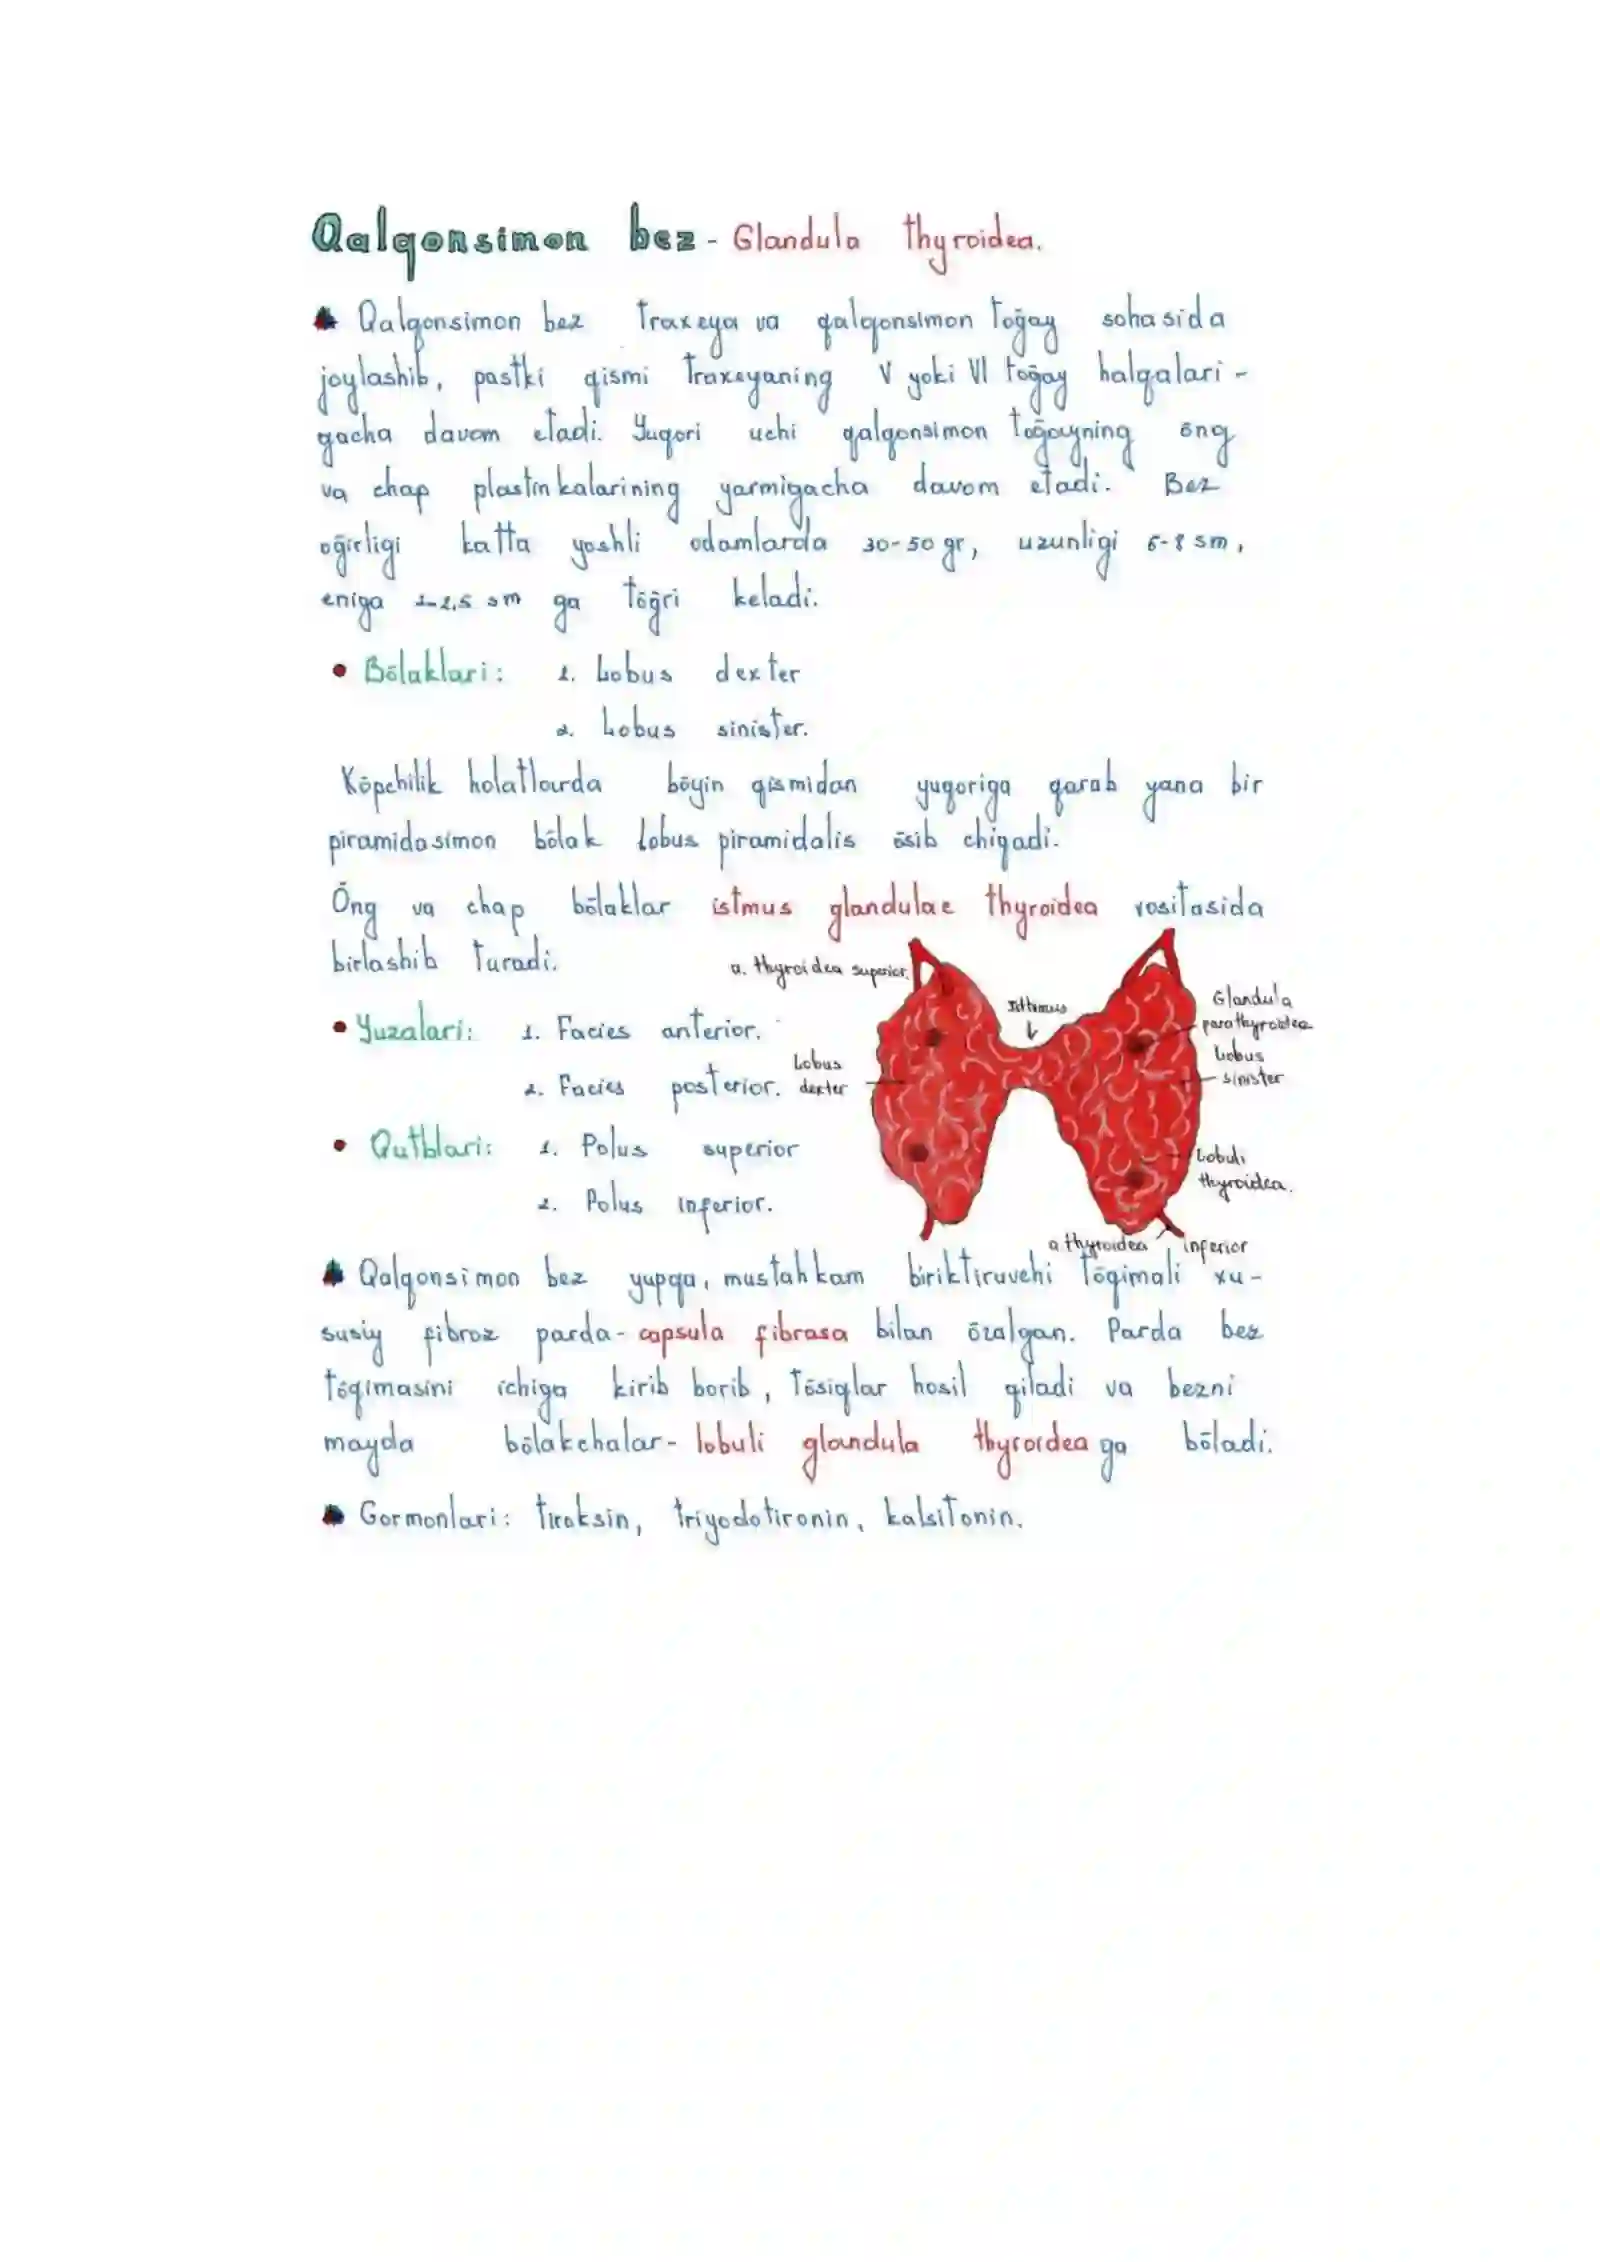 Qalqonsimon bez - Glandula thyroidea.
Qalqonsimon bez traxeya va qalqonsimon toğay sohasida
joylashib, pastki qismi traxeyaning V yoki VI toğay halqalari-
gacha davom etadi. Yuqori uchi qalqonsimon toğayning ōng
va chap plastinkalarining yarmigacha davom etadi. Bez
oğirligi katta yoshli odamlarda 30-50 gr, uzunligi 6-8 sm,
eniga 2-2,5 sm ga tōğri keladi.
• Bōlaklari: 1. Lobus dexter
2. Lobus sinister.
Kōpchilik holatlarda bōyin qismidan yuqoriga qarab yana bir
piramidasimon bōlak lobus piramidalis ōsib chiqadi.
Ōng va chap bōlaklar istmus glandulae thyroidea vositasida
birlashib turadi.
a. thyroidea superior.
Isthmus
Glandula
parathyroidea
• Yuzalari: 1. Facies anterior.
2. Facies posterior.
Lobus
dexter
Lobus
sinister
• Qutblari: 1. Polus superior
2. Polus inferior.
Lobuli
thyroidea.
a thyroidea inferior
Qalqonsimon bez yupqa, mustahkam biriktiruvchi tōqimali xu-
susiy fibroz parda - capsula fibrasa bilan ōralgan. Parda bez
tōqimasini ichiga kirib borib, tōsiqlar hosil qiladi va bezni
mayda bōlakchalar - lobuli glandula thyroidea ga bōladi.
Gormonlari: tiroksin, triyodotironin, kalsitonin.